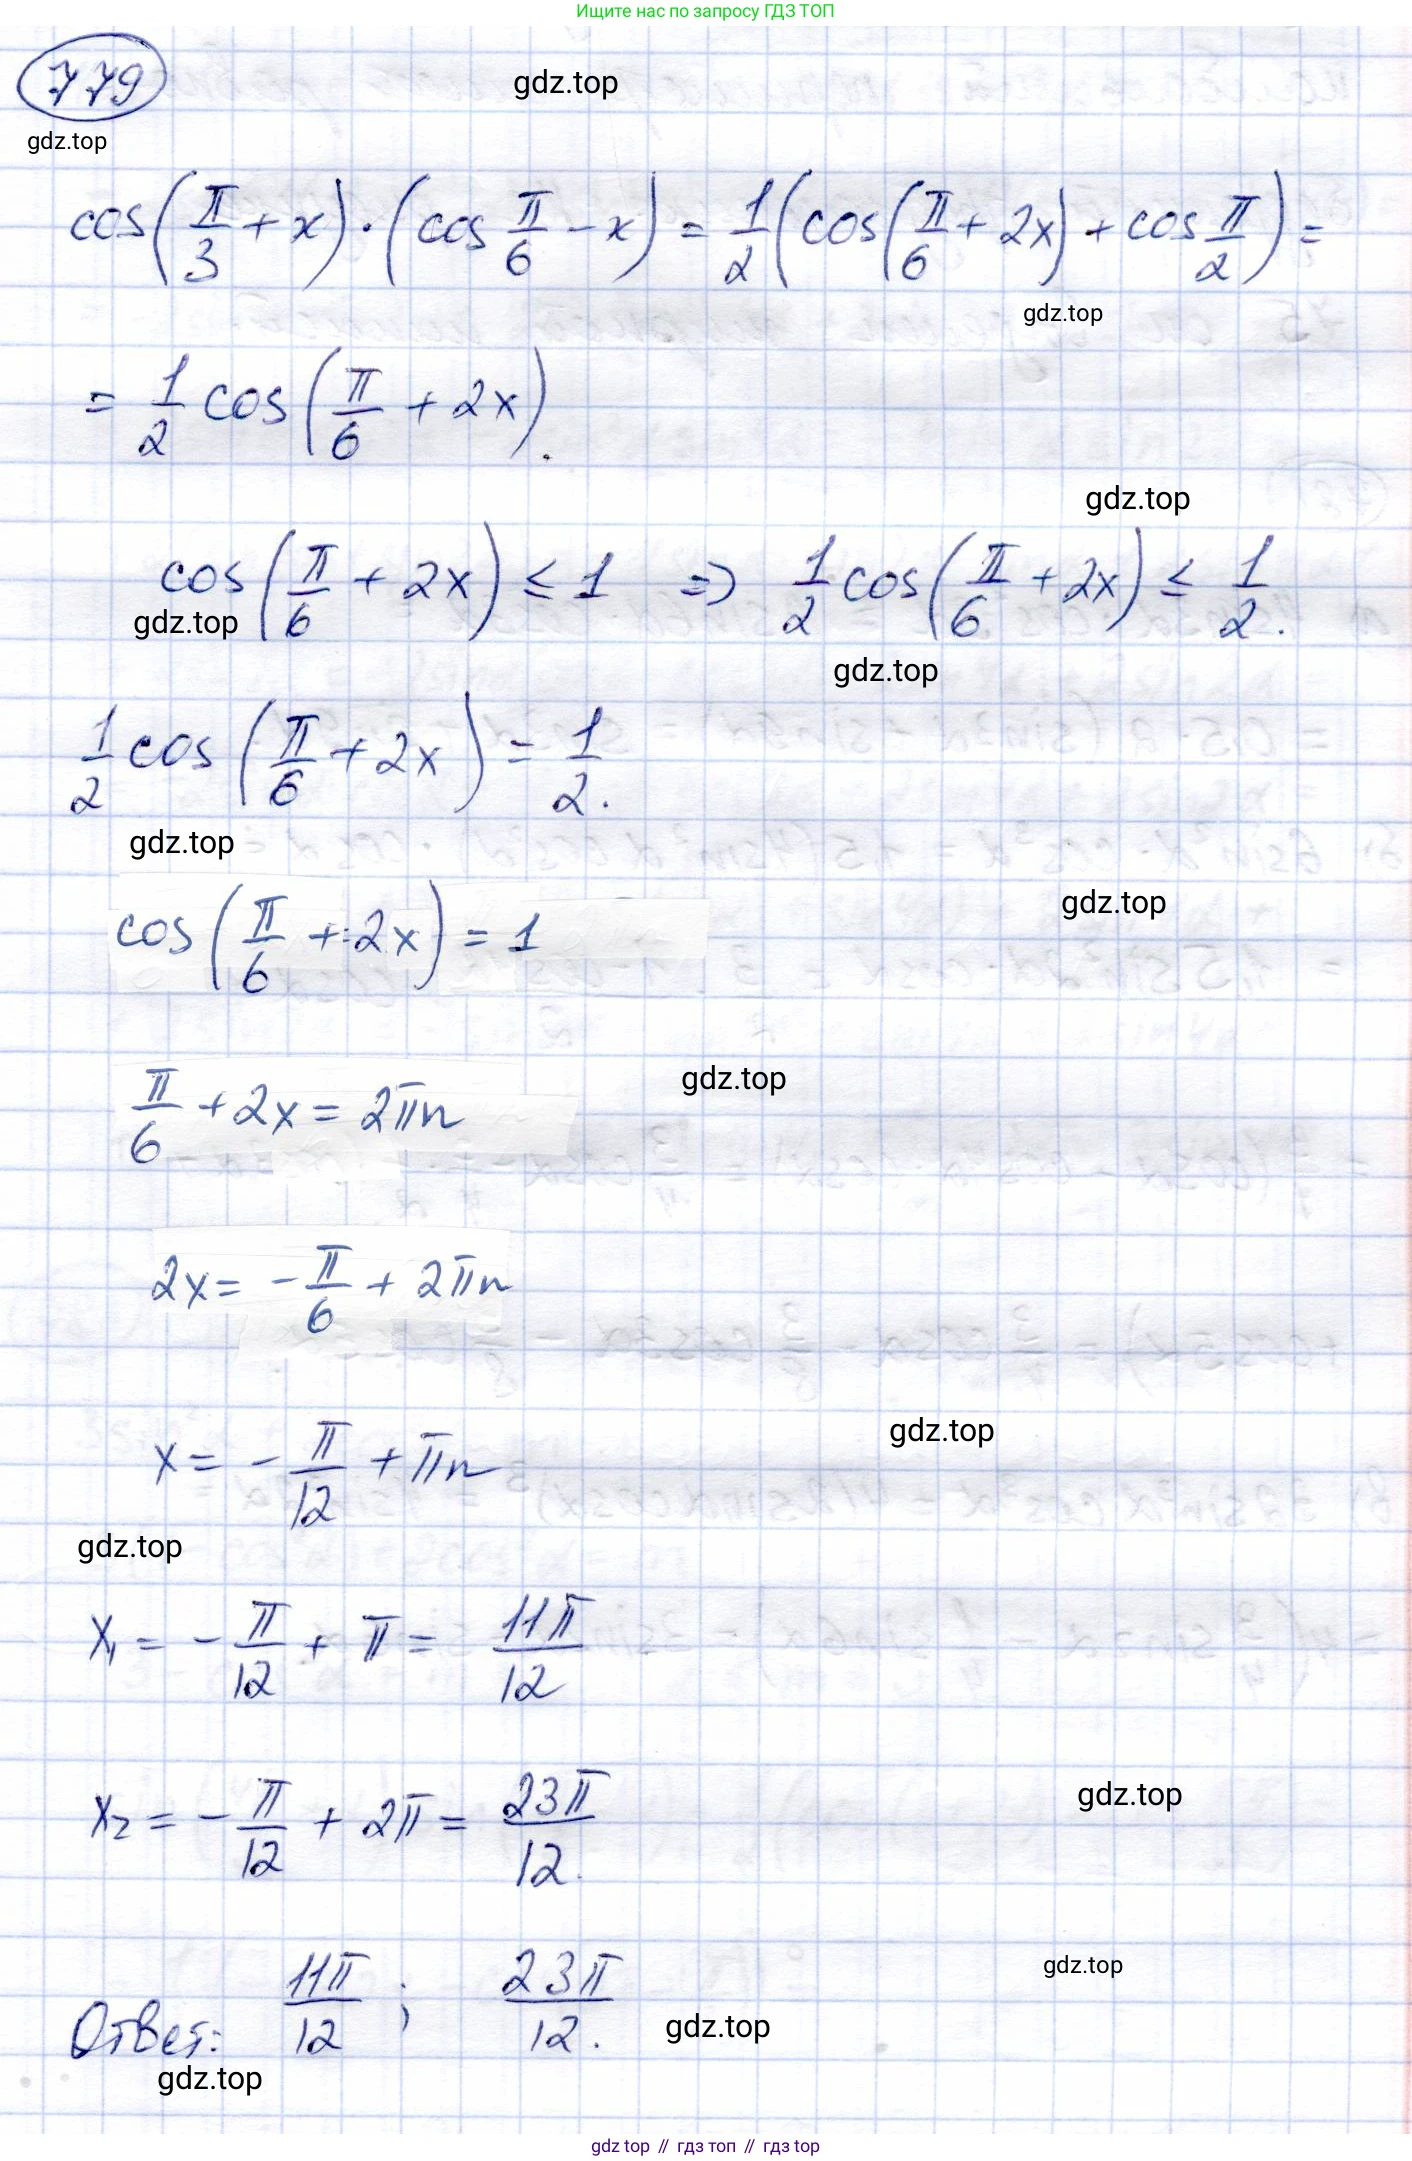 Ищите нас по запросу ГДЗ ТОП
779
gdz.top
gdz.top
cos(π/3 + x)·(cos π/6 - x) = 1/2(cos(π/6 + 2x) + cos π/2) =
gdz.top
= 1/2 cos(π/6 + 2x).
gdz.top
cos(π/6 + 2x) ≤ 1 => 1/2 cos(π/6 + 2x) ≤ 1/2.
gdz.top
gdz.top
1/2 cos(π/6 + 2x) = 1/2.
gdz.top
cos(π/6 + 2x) = 1
gdz.top
π/6 + 2x = 2πn
gdz.top
2x = - π/6 + 2πn
x = - π/12 + πn
gdz.top
gdz.top
x₁ = - π/12 + π = 11π/12
x₂ = - π/12 + 2π = 23π/12.
gdz.top
Ответ: 11π/12 ; 23π/12.
gdz.top
gdz.top
gdz.top
gdz top // гдз топ // гдз top